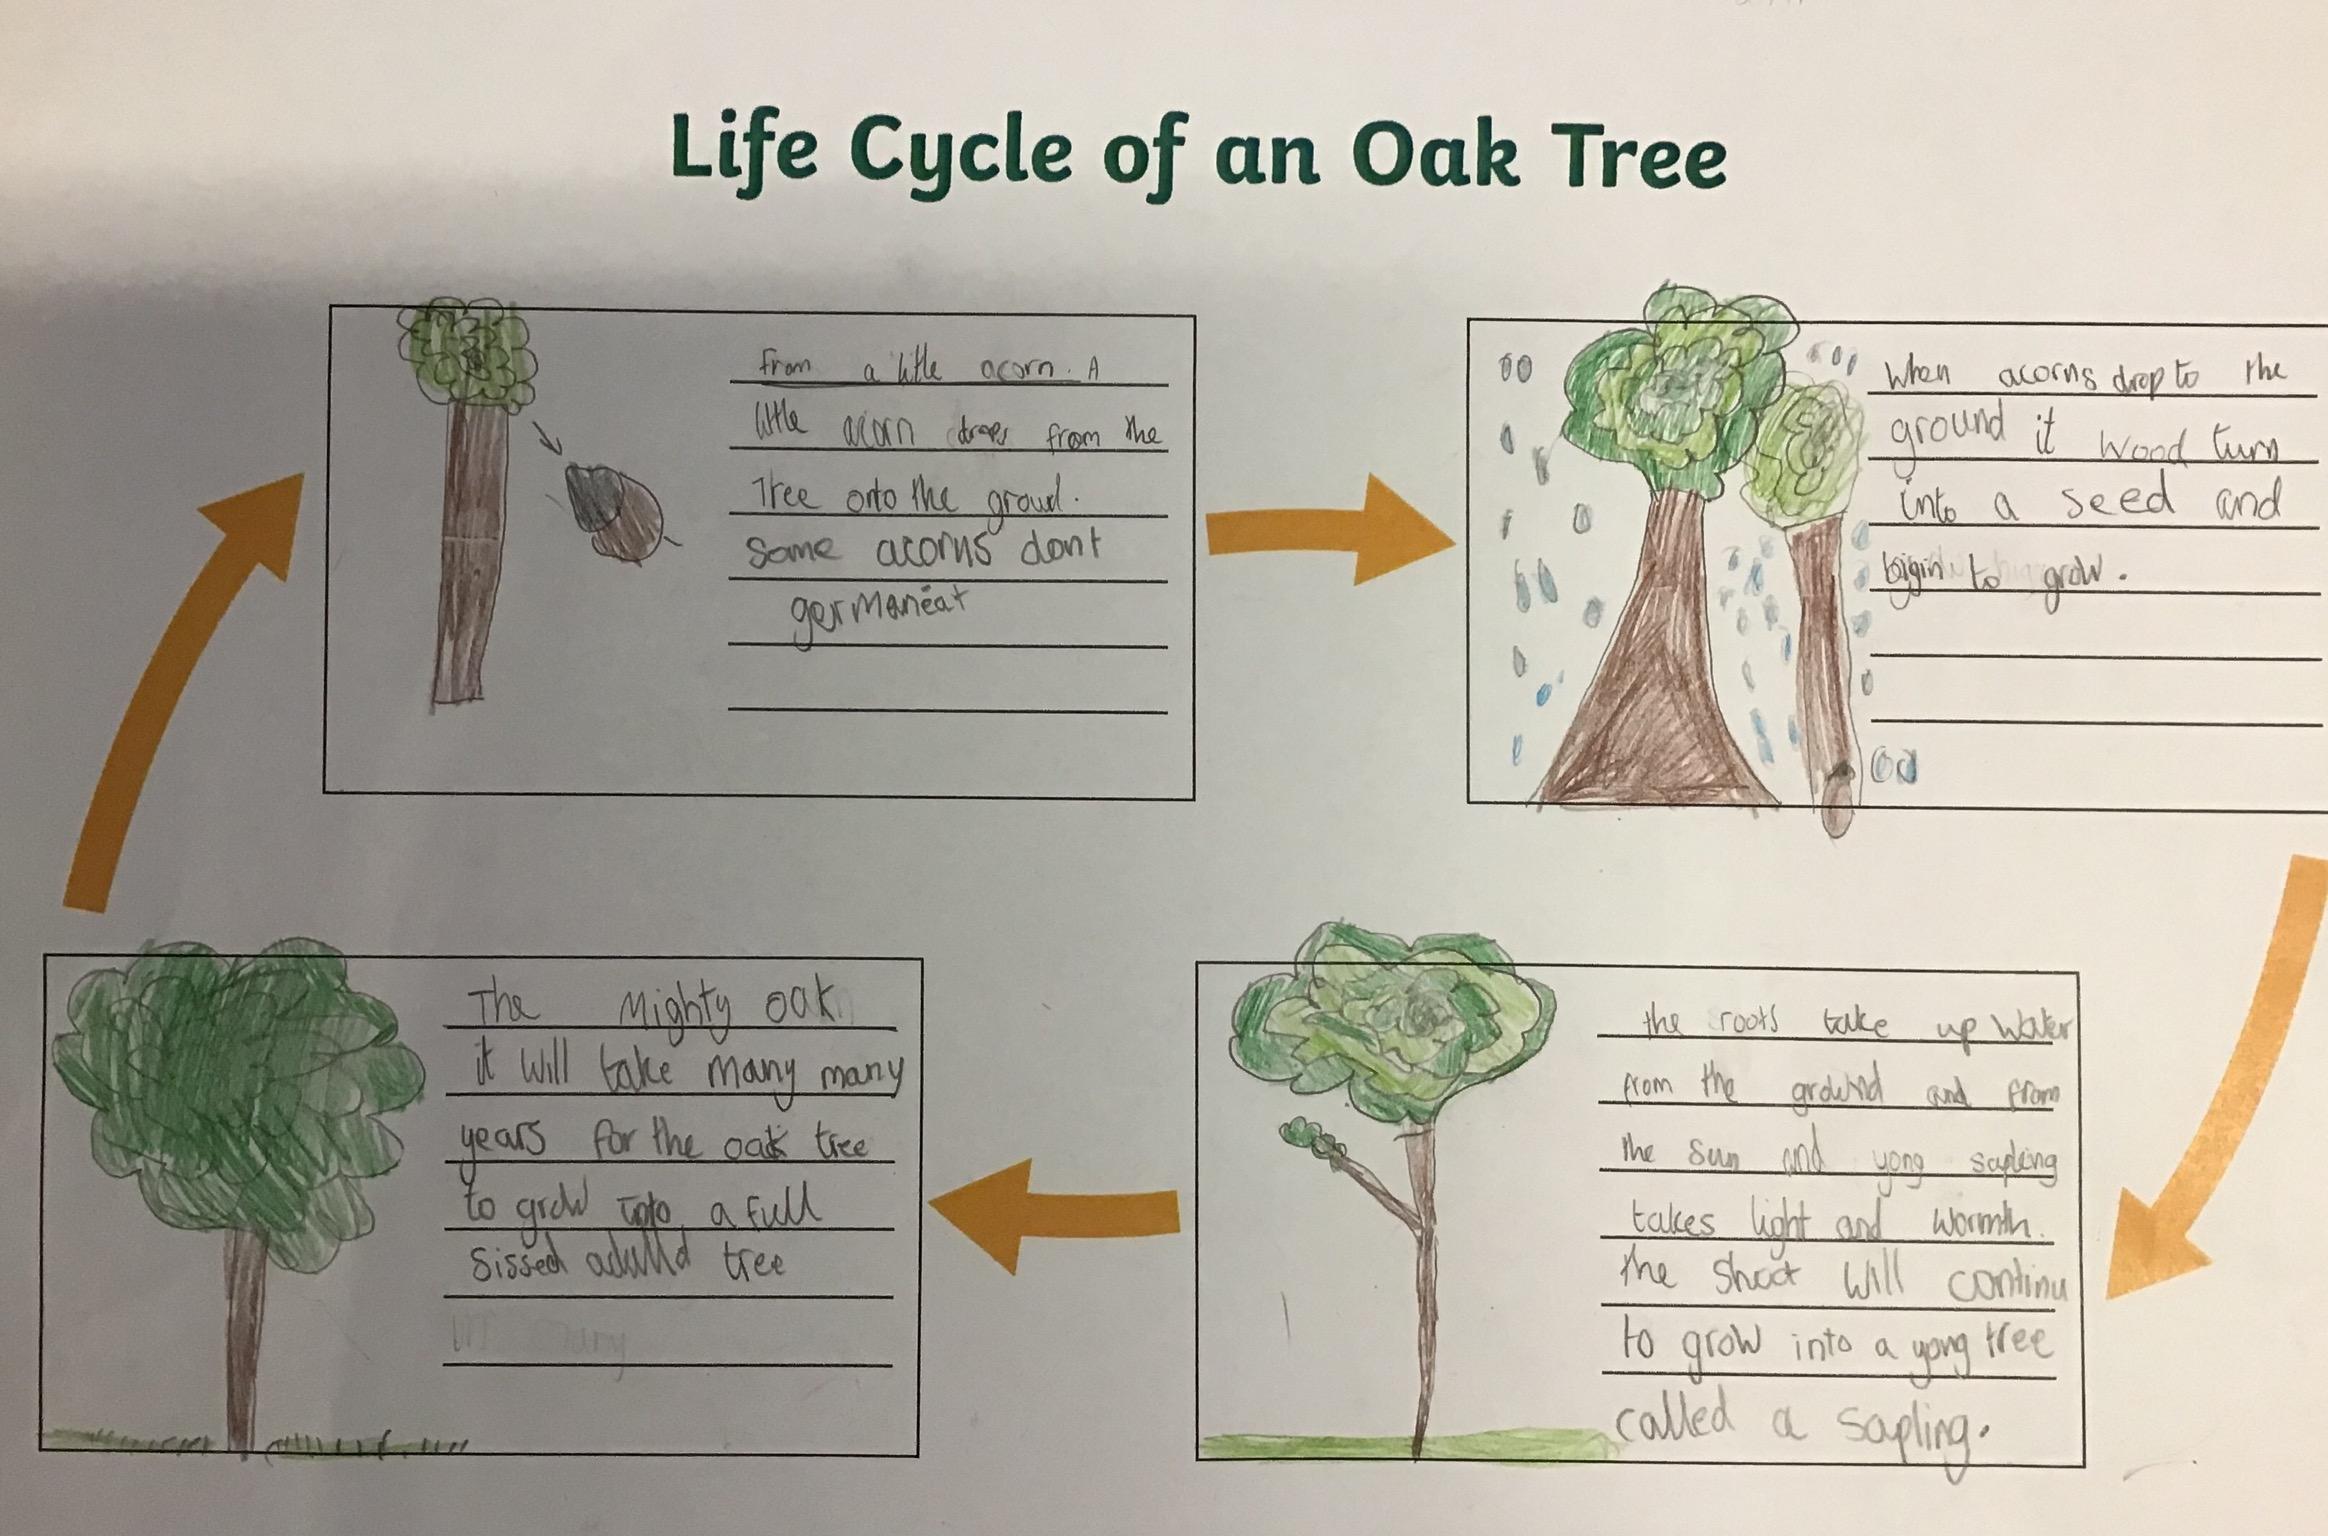 Life Cycle of an Oak Tree
from a little acorn. A
little acorn drops from the
Tree onto the groud.
Some acorns dont
germaneat
When acorns drop to the
ground it wood turn
into a seed and
bigin to grow.
The Mighty oak
it will take many many
years for the oak tree
to grow into a full
sissed adulld tree
the roots take up water
from the grownd and from
the sun and yong sapling
takes light and wormth.
the shoot will continu
to grow into a yong tree
called a sapling.